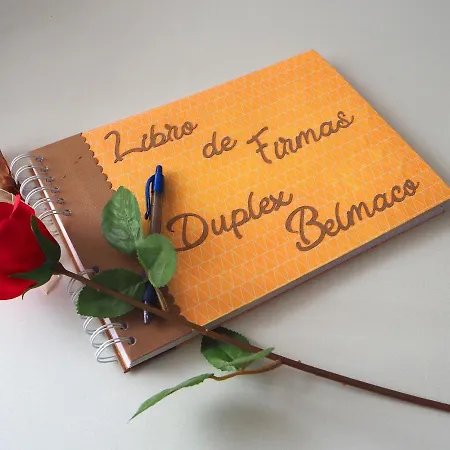 Libro de Firmas
Duplex Belmaco